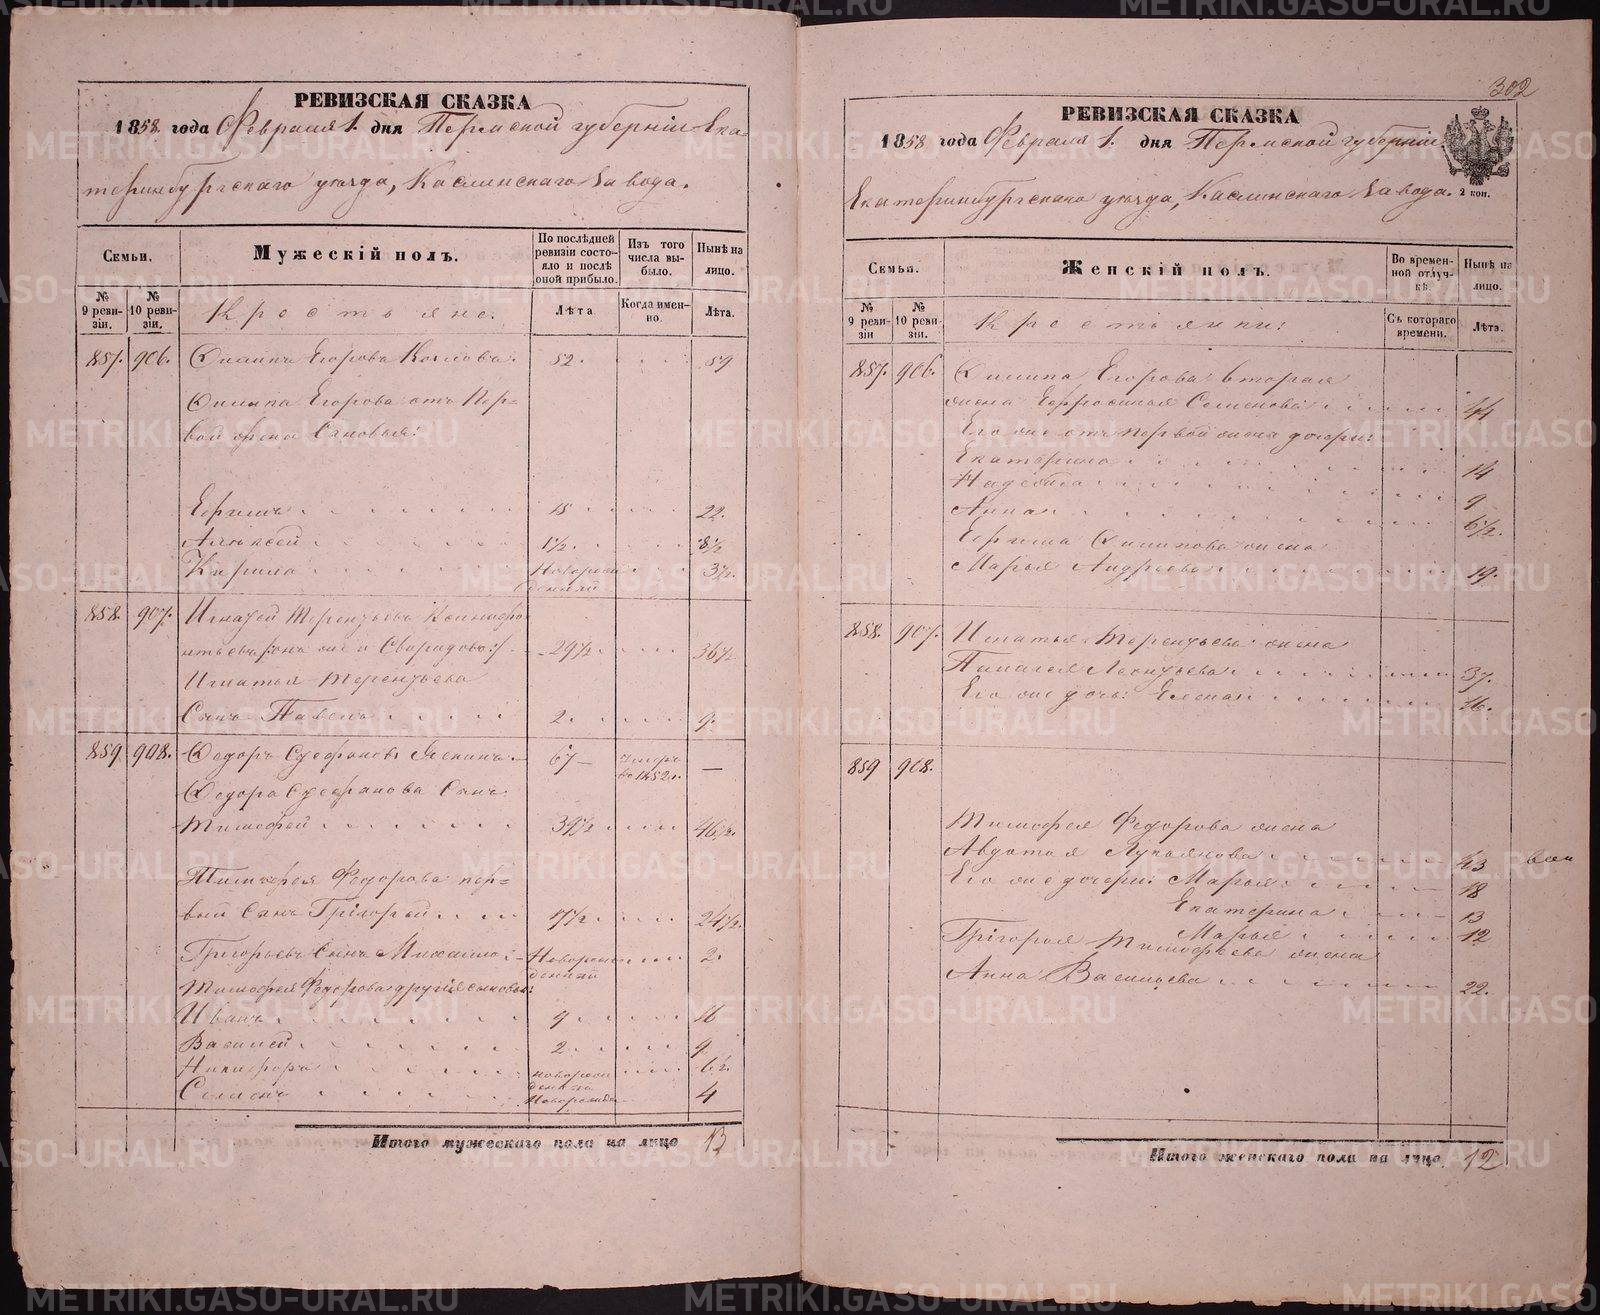 РЕВИЗСКАЯ СКАЗКА
1858. года Февраля 1. дня Пермской губерніи Ека-
теринбургскаго уѣзда, Каслинскаго Завода.
Семьи.
Мужескій полъ.
По послѣдней ревизіи состояло и послѣ оной прибыло.
Изъ того числа выбыло.
Нынѣ на лицо.
№ 9 ревизіи.
№ 10 ревизіи.
Крестьяне.
Лѣта
Когда именно.
Лѣта.
857. 906. Филипъ Егоровъ 52. 59
Филипа Егорова отъ Пер-
вой жены Сыновья:
Ефимъ 15 22.
Алексей 1½. 8½
Кирила Новорож- 3½.
денный
858. 907. Игнатей Терентьевъ
29½ 36½
Игнатья Терентьева
Сынъ Павелъ 2 9.
859 908. Федоръ Стефановъ 67 — умеръ —
въ 1852 г.
Федора Стефанова Сынъ
Тимофей 39½ 46½.
Тимофея Федорова пер-
вый Сынъ Григорий 17½ 24½.
Григорьевъ Сынъ Михайло Новорож- 2.
денный
Тимофея Федорова другія сыновья:
Иванъ 9 16
Василей 2 9
Никифоръ новорож- 6½.
денный
Семенъ Новорожде 4
Итого мужескаго пола на лицо 13
302
РЕВИЗСКАЯ СКАЗКА
1858 года Февраля 1. дня Пермской губерніи
Екатеринбургскаго уѣзда, Каслинскаго Завода.
2 коп.
Семьи.
Женскій полъ.
Во временной отлучкѣ.
Нынѣ на лицо.
№ 9 ревизіи
№ 10 ревизіи.
Крестьянки:
Съ котораго времени.
Лѣта.
857. 906. Филипа Егорова вторая
жена Ефросинья Семенова 44
Его же отъ первой жены дочери:
Екатерина 14
Надежда 9
Анна 6½.
Ефима Филипова жена
Марья Андреева 19.
858. 907. Игнатья Терентьева жена
Пелагея Леонтьева 37.
Его же дочь: Елена 16.
859 908.
Тимофея Федорова жена
Авдотья Лукоянова 43
Его же дочери: Марья 18
Екатерина 13
Марья 12
Григорья Тимофеева жена
Анна Васильева 22.
Итого женскаго пола на лицо 12
METRIKI.GASO-URAL.RU